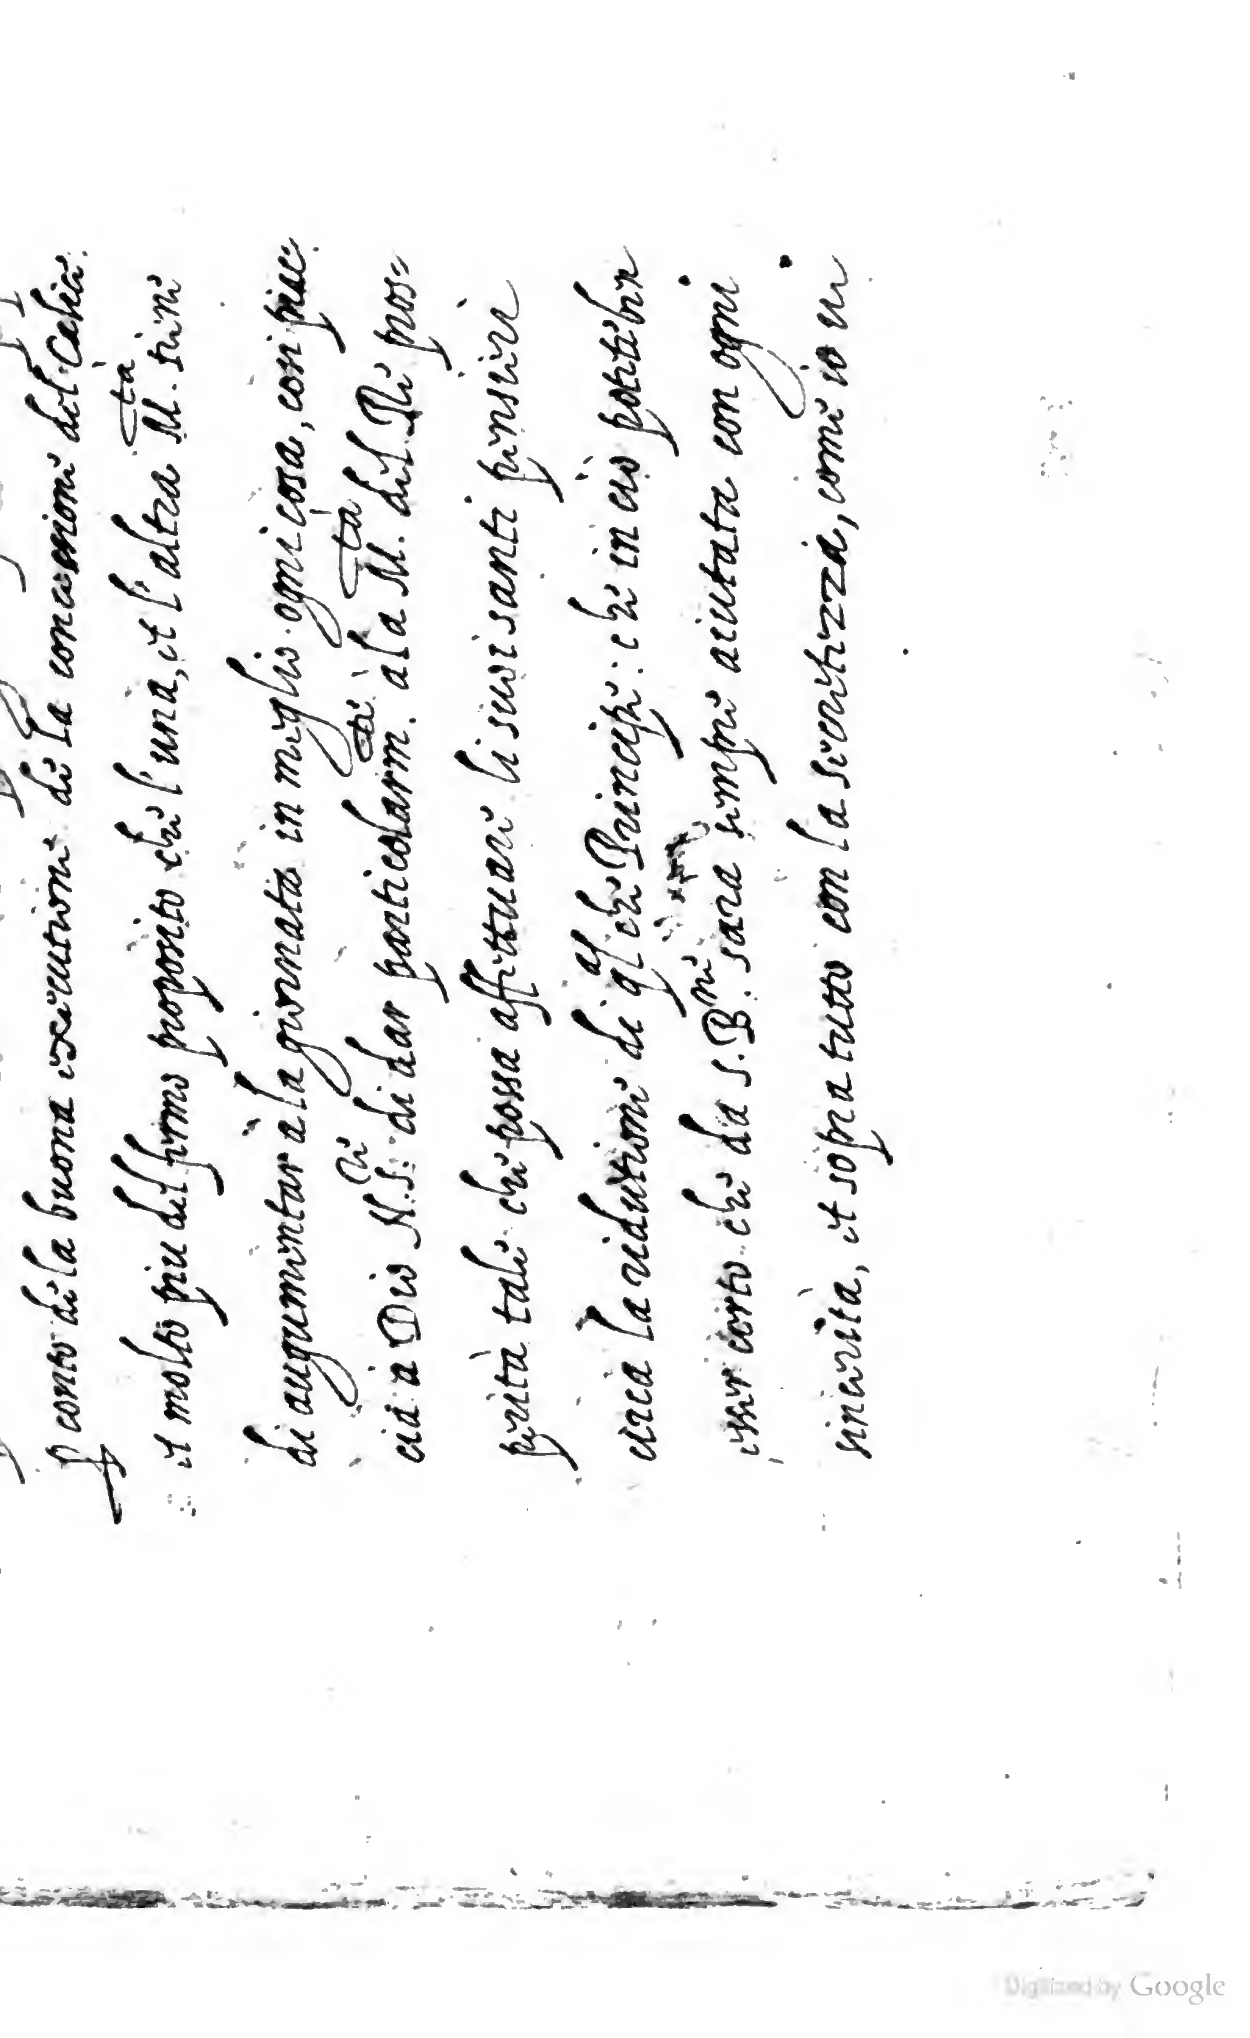 conto di la buona executione di la concessione del Cesia.
et molto piu del firmo proposito che l'una, et l'altra M.tà tiene
di augumentar à la giornata in meglio ogni cosa, con piac=
cia à Dio N. S.re di dar particolarm.te à la M.tà del Re pros=
perità tale che possa affettuare li suoi santi pensieri
circa la redutione di q.al che Principe: che in ciò potrebbe
esser certo che da S. B.ne sara sempre aiutata con ogni
sincerità, et sopra tutto con la secretezza, come io vi
Digitized by Google